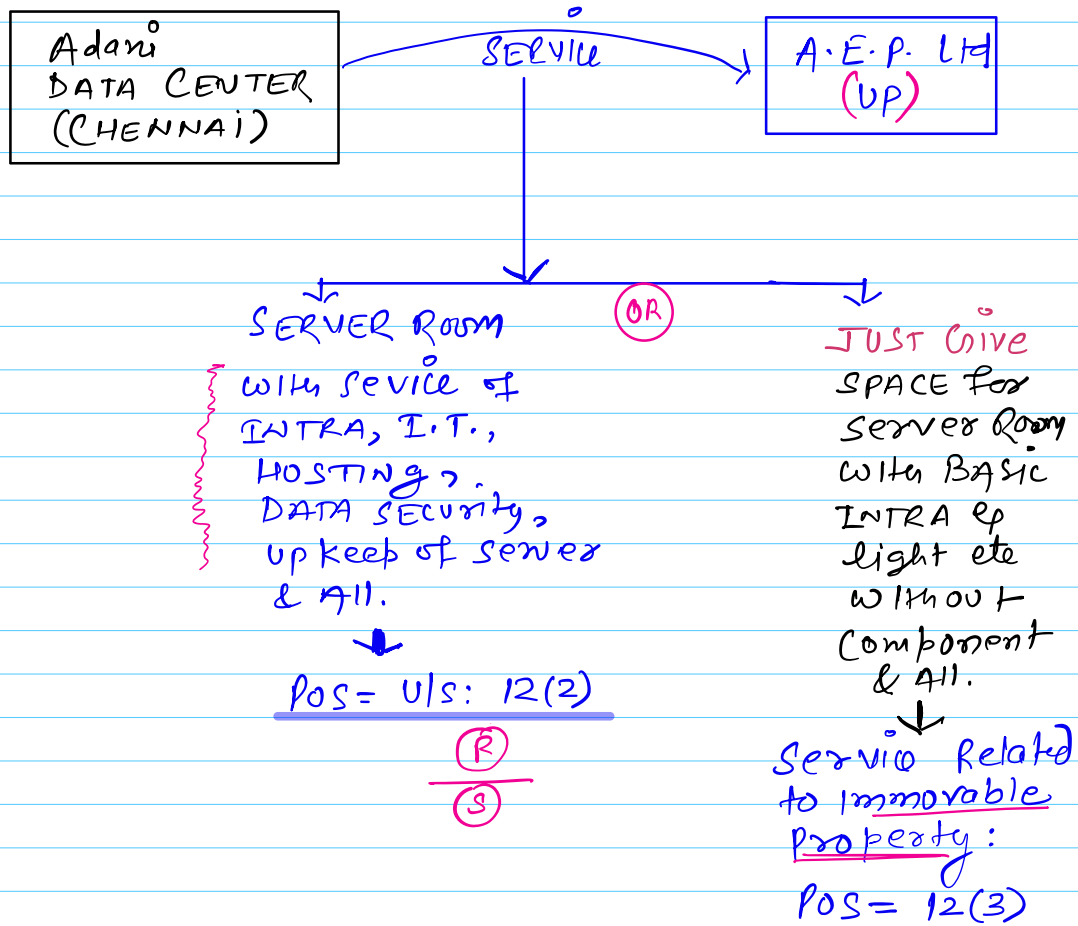 Adani
DATA CENTER
(CHENNAi)
SERVICE
A.E.P. Ltd
(UP)
SERVER ROOM
with Sevice of
INTRA, I.T.,
HOSTINg,
DATA SECUrity,
upkeep of server
& All.
POS = U/S: 12(2)
R
S
OR
JUST Give
SPACE for
server Room
with BASIC
INTRA &
light etc
without
Component
& All.
Service Related
to Immovable
Property:
POS = 12(3)